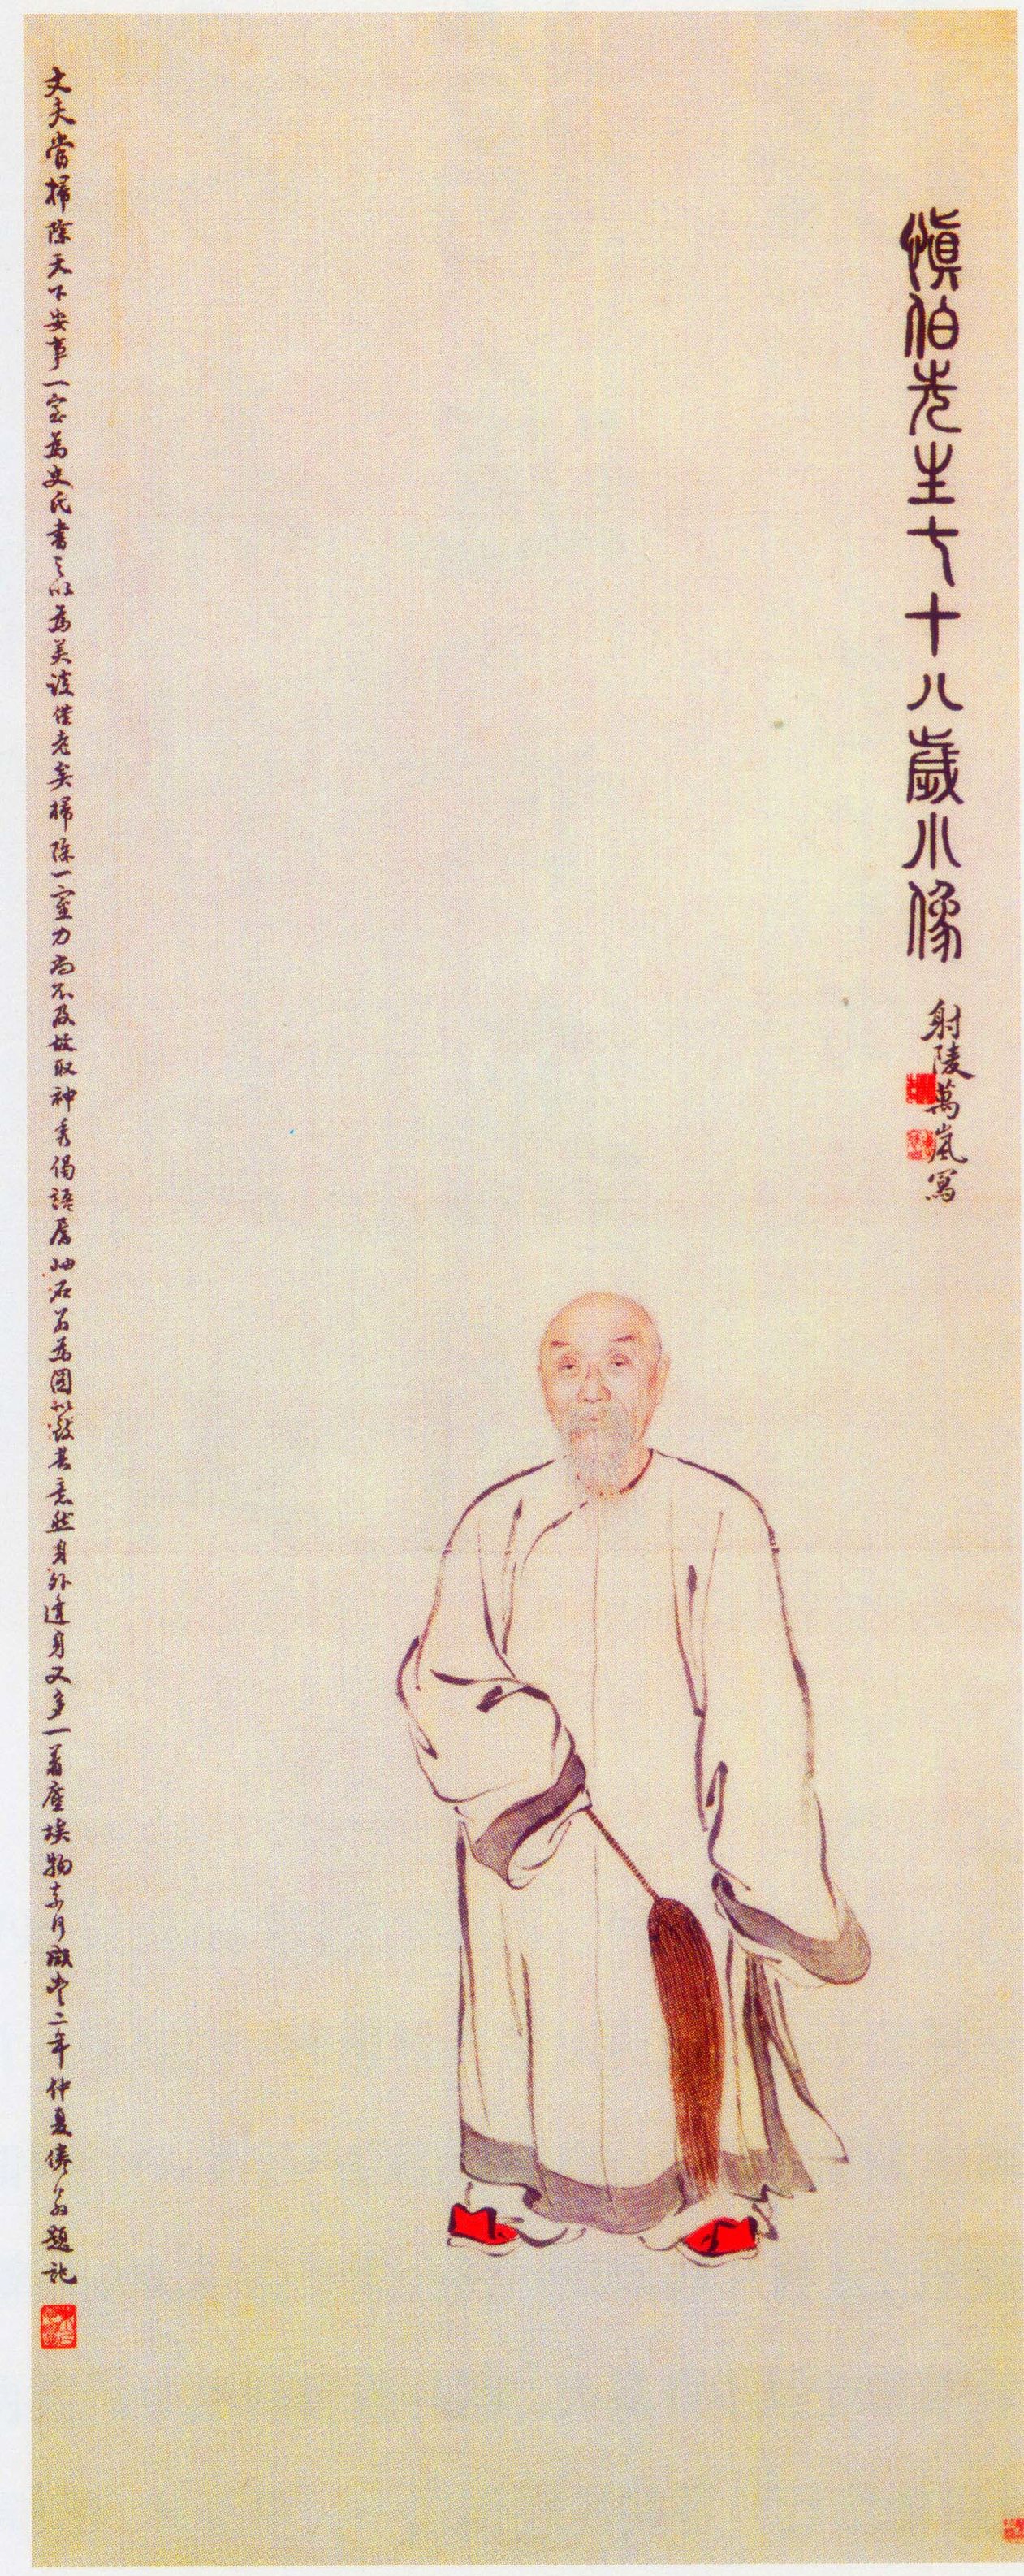 慎伯先生七十八歲小像
射陵萬嵐寫
丈夫當掃除天下安事一室為史氏書之以為美談倦老矣掃除一室力尚不及故取神秀偈語屬岫石翁為圖以致其意然身外違身又多一著塵埃物矣咸豐二年仲夏倦翁題記